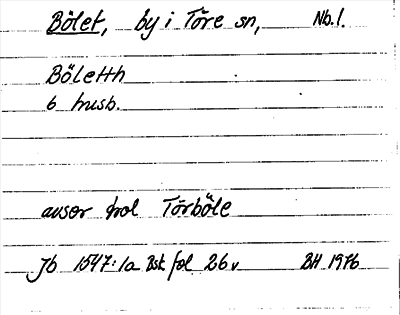 Bölet, by i Töre sn, Nb. l.
Böletth
6 husb.
avser trol Törböle
Jb 1547:1a Bsk fol 26 v BH 1976